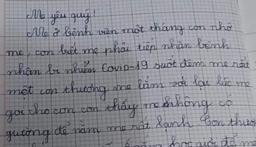 Mẹ yêu quý!
Mẹ ở bệnh viện một tháng con nhớ
mẹ, con biết mẹ phải tiếp nhận bệnh
nhân bị nhiễm Covid-19 suốt đêm mẹ rất
mệt con thương mẹ lắm với lại lúc mẹ
gọi cho con con thấy mẹ không có
giường để nằm mẹ rất lạnh Con thương